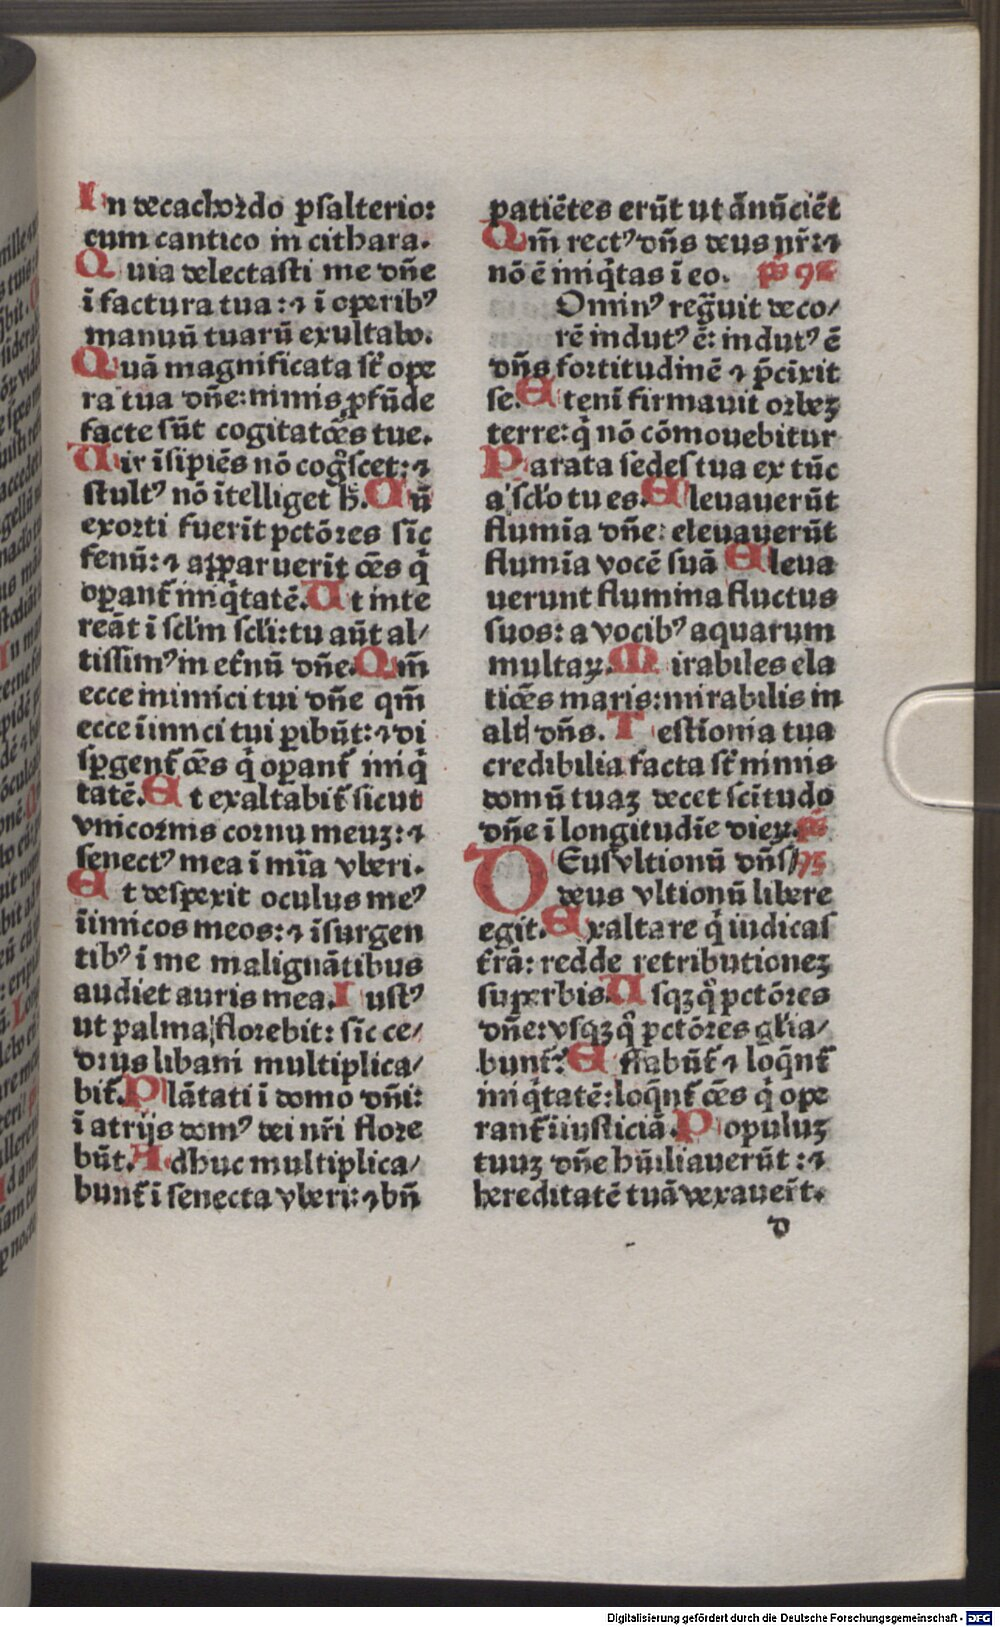 In decachordo psalterio:
cum cantico in cithara.
Quia delectasti me dñe
ī factura tua: ⁊ ī operibꝰ
manuū tuarū exultabo.
Quā magnificata st̄ ope
ra tua dñe: nimis ꝓfūde
facte sūt cogitatōes tue.
Uir īsipiēs nō cog̃scet: ⁊
stultꝰ nō ītelliget h̄. Cū
exorti fuerīt pctōres sīc
fenū: ⁊ apparuerīt oēs q̇
oꝑant̄ iniq̇tatē. Ut inte
reāt ī scl̄m scl̄i: tu aūt al/
tissimꝰ in et̄nū dñe. Qm̄
ecce inimici tui dñe qm̄
ecce iīmci tui ꝑibūt: ⁊ di
sꝑgent̄ oēs q̇ oꝑant̄ iniq̇
tatē. Et exaltabit̄ sicut
vnicornis cornu meuꝫ: ⁊
senectꝰ mea ī mīa vberi.
Et despexit oculus meꝰ
īimicos meos: ⁊ īsurgen
tibꝰ ī me malignātibus
audiet auris mea. Iustꝰ
ut palma florebit: sīc ce/
drus libani multiplica/
bit̄. Plātati ī domo dñi:
ī atrijs domꝰ dei nr̄i flore
būt. Adhuc multiplica/
bunt̄ ī senecta vberi: ⁊ bñ
patiētes erūt ut ānūciēt
Qm̄ rectꝰ dñs deus nr̄: ⁊
nō ē iniq̇tas ī eo. ps 92
Ominꝰ reg̃uit deco/
rē indutꝰ ē: indutꝰ ē
dñs fortitudinē ⁊ p̄cīxit
se. Etenī firmauit orbeꝫ
terre: q̇ nō cōmouebitur
Parata sedes tua ex tūc
a scl̄o tu es. Eleuauerūt
flumīa dñe: eleuauerūt
flumīa vocē suā Eleua
uerunt flumina fluctus
suos: a vocibꝰ aquarum
multaꝝ. Mirabiles ela
tiōes maris: mirabilis in
alt dñs. Testīonia tua
credibilia facta st̄ nimis
domū tuaꝫ decet scītudo
dñe ī longitudīe dieꝝ. ps
DEus vltionū dñs 93
deus vltionū libere
egit. Exaltare q̇ iudicas
t̄rā: redde retributioneꝫ
superbis. Usqꝫ q̊ pctōres
dñe: vsqꝫ q̊ pctōres gl̄ia/
bunt̄: Effabūt̄ ⁊ loq̄nt̄
iniq̇tatē: loq̄nt̄ oēs q̇ ope
rant̄ iniusticiā. Populuꝫ
tuuꝫ dñe hūiliauerūt: ⁊
hereditatē tuā vexauer̄t.
d
Digitalisierung gefördert durch die Deutsche Forschungsgemeinschaft - DFG